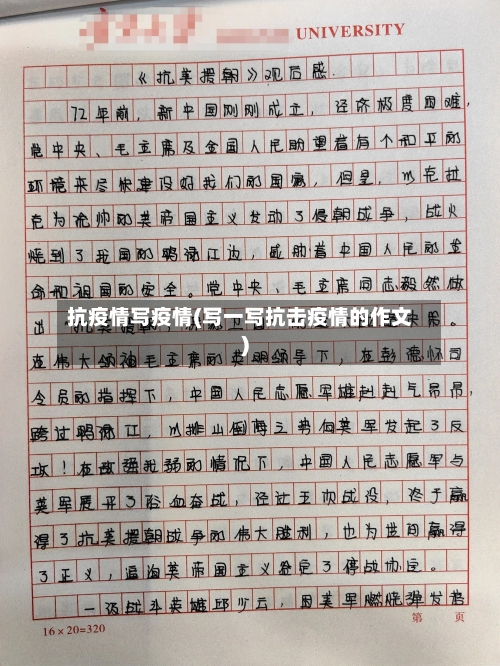 UNIVERSITY
《抗美援朝》观后感.
72年前，新中国刚刚成立，经济极度困难，
党中央、毛主席及全国人民盼望着有个和平的
环境来尽快建设好我们的国家，但是，以克拉
克为统帅的美帝国主义发动了侵朝战争，战火
烧到了我国的鸭渌江边，威胁着中国人民的生
命和祖国的安全。党中央、毛主席同志毅然做
出
抗疫情写疫情(写一写抗击疫情的作文
)
在伟大领袖毛主席的英明领导下，在彭德怀司
令员的指挥下，中国人民志愿军雄赳赳气昂昂，
跨过鸭渌江，以排山倒海之势向美军发起了反
攻！在敌强我弱的情况下，中国人民志愿军与
美军展开了浴血奋战，经过五次战役，终于赢
得了抗美援朝战争的伟大胜利，也为世间赢得
了正义，逼迫美帝国主义签定了停战协定。
一级战斗英雄邱少云，因美军燃烧弹发着
16×20=320
第 页